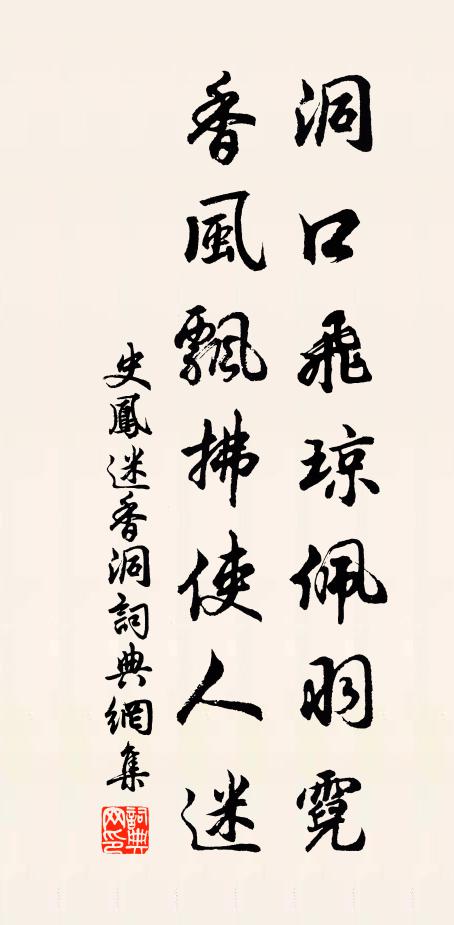 洞口飛瓊佩羽霓
香風飄拂使人迷
史鳳迷香洞詞典網集
詞典網印